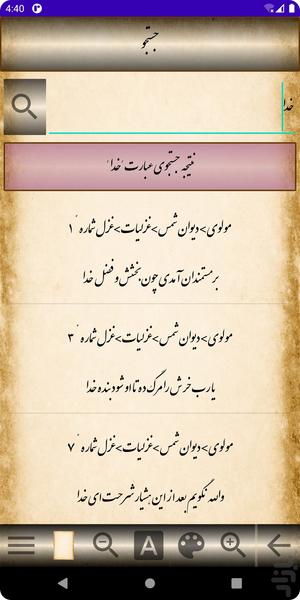 4:40
جستجو
خدا
نتیجه جستجوی عبارت 'خدا'
مولوی>دیوان شمس>غزلیات>غزل شماره ۱
بر مستمندان آمدی چون بخشش و فضل خدا
مولوی>دیوان شمس>غزلیات>غزل شماره ۳
یارب خرش را مرگ ده تا او شود بنده خدا
مولوی>دیوان شمس>غزلیات>غزل شماره ۷
والله نگویم بعد از این هشیار شرحت ای خدا
A